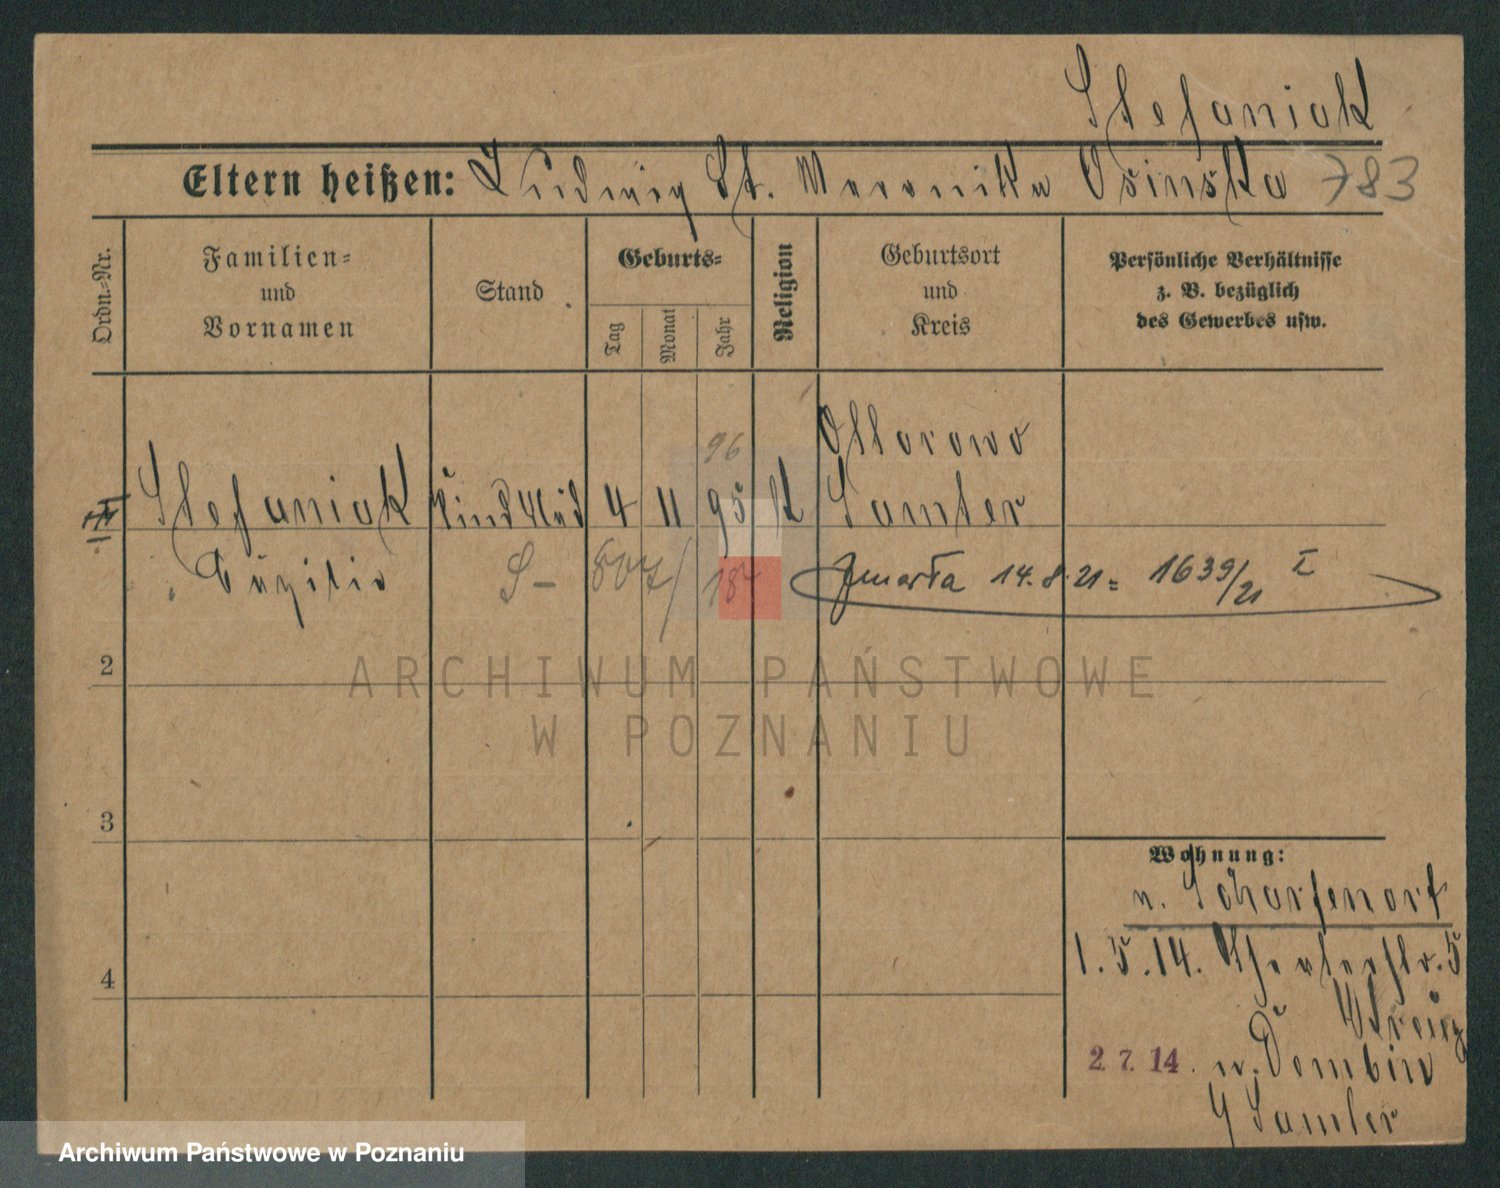 Stefaniak
Eltern heißen: Ludwig St. Veronika Osinska 783
Ordn.-Nr.
Familien-
und
Vornamen
Stand
Geburts-
Tag
Monat
Jahr
Religion
Geburtsort
und
Kreis
Persönliche Verhältnisse
z. B. bezüglich
des Gewerbes usw.
96
Ottorowo
Stefaniak 4 11 95 K Samter
S- 807/184
zmarła 14.8.21 = 1639/21 I
2
ARCHIWUM PAŃSTWOWE
W POZNANIU
3
Wohnung:
n. Scharfenort
1.5.14. 5
4
2.7.14. n.
Samter
Archiwum Państwowe w Poznaniu